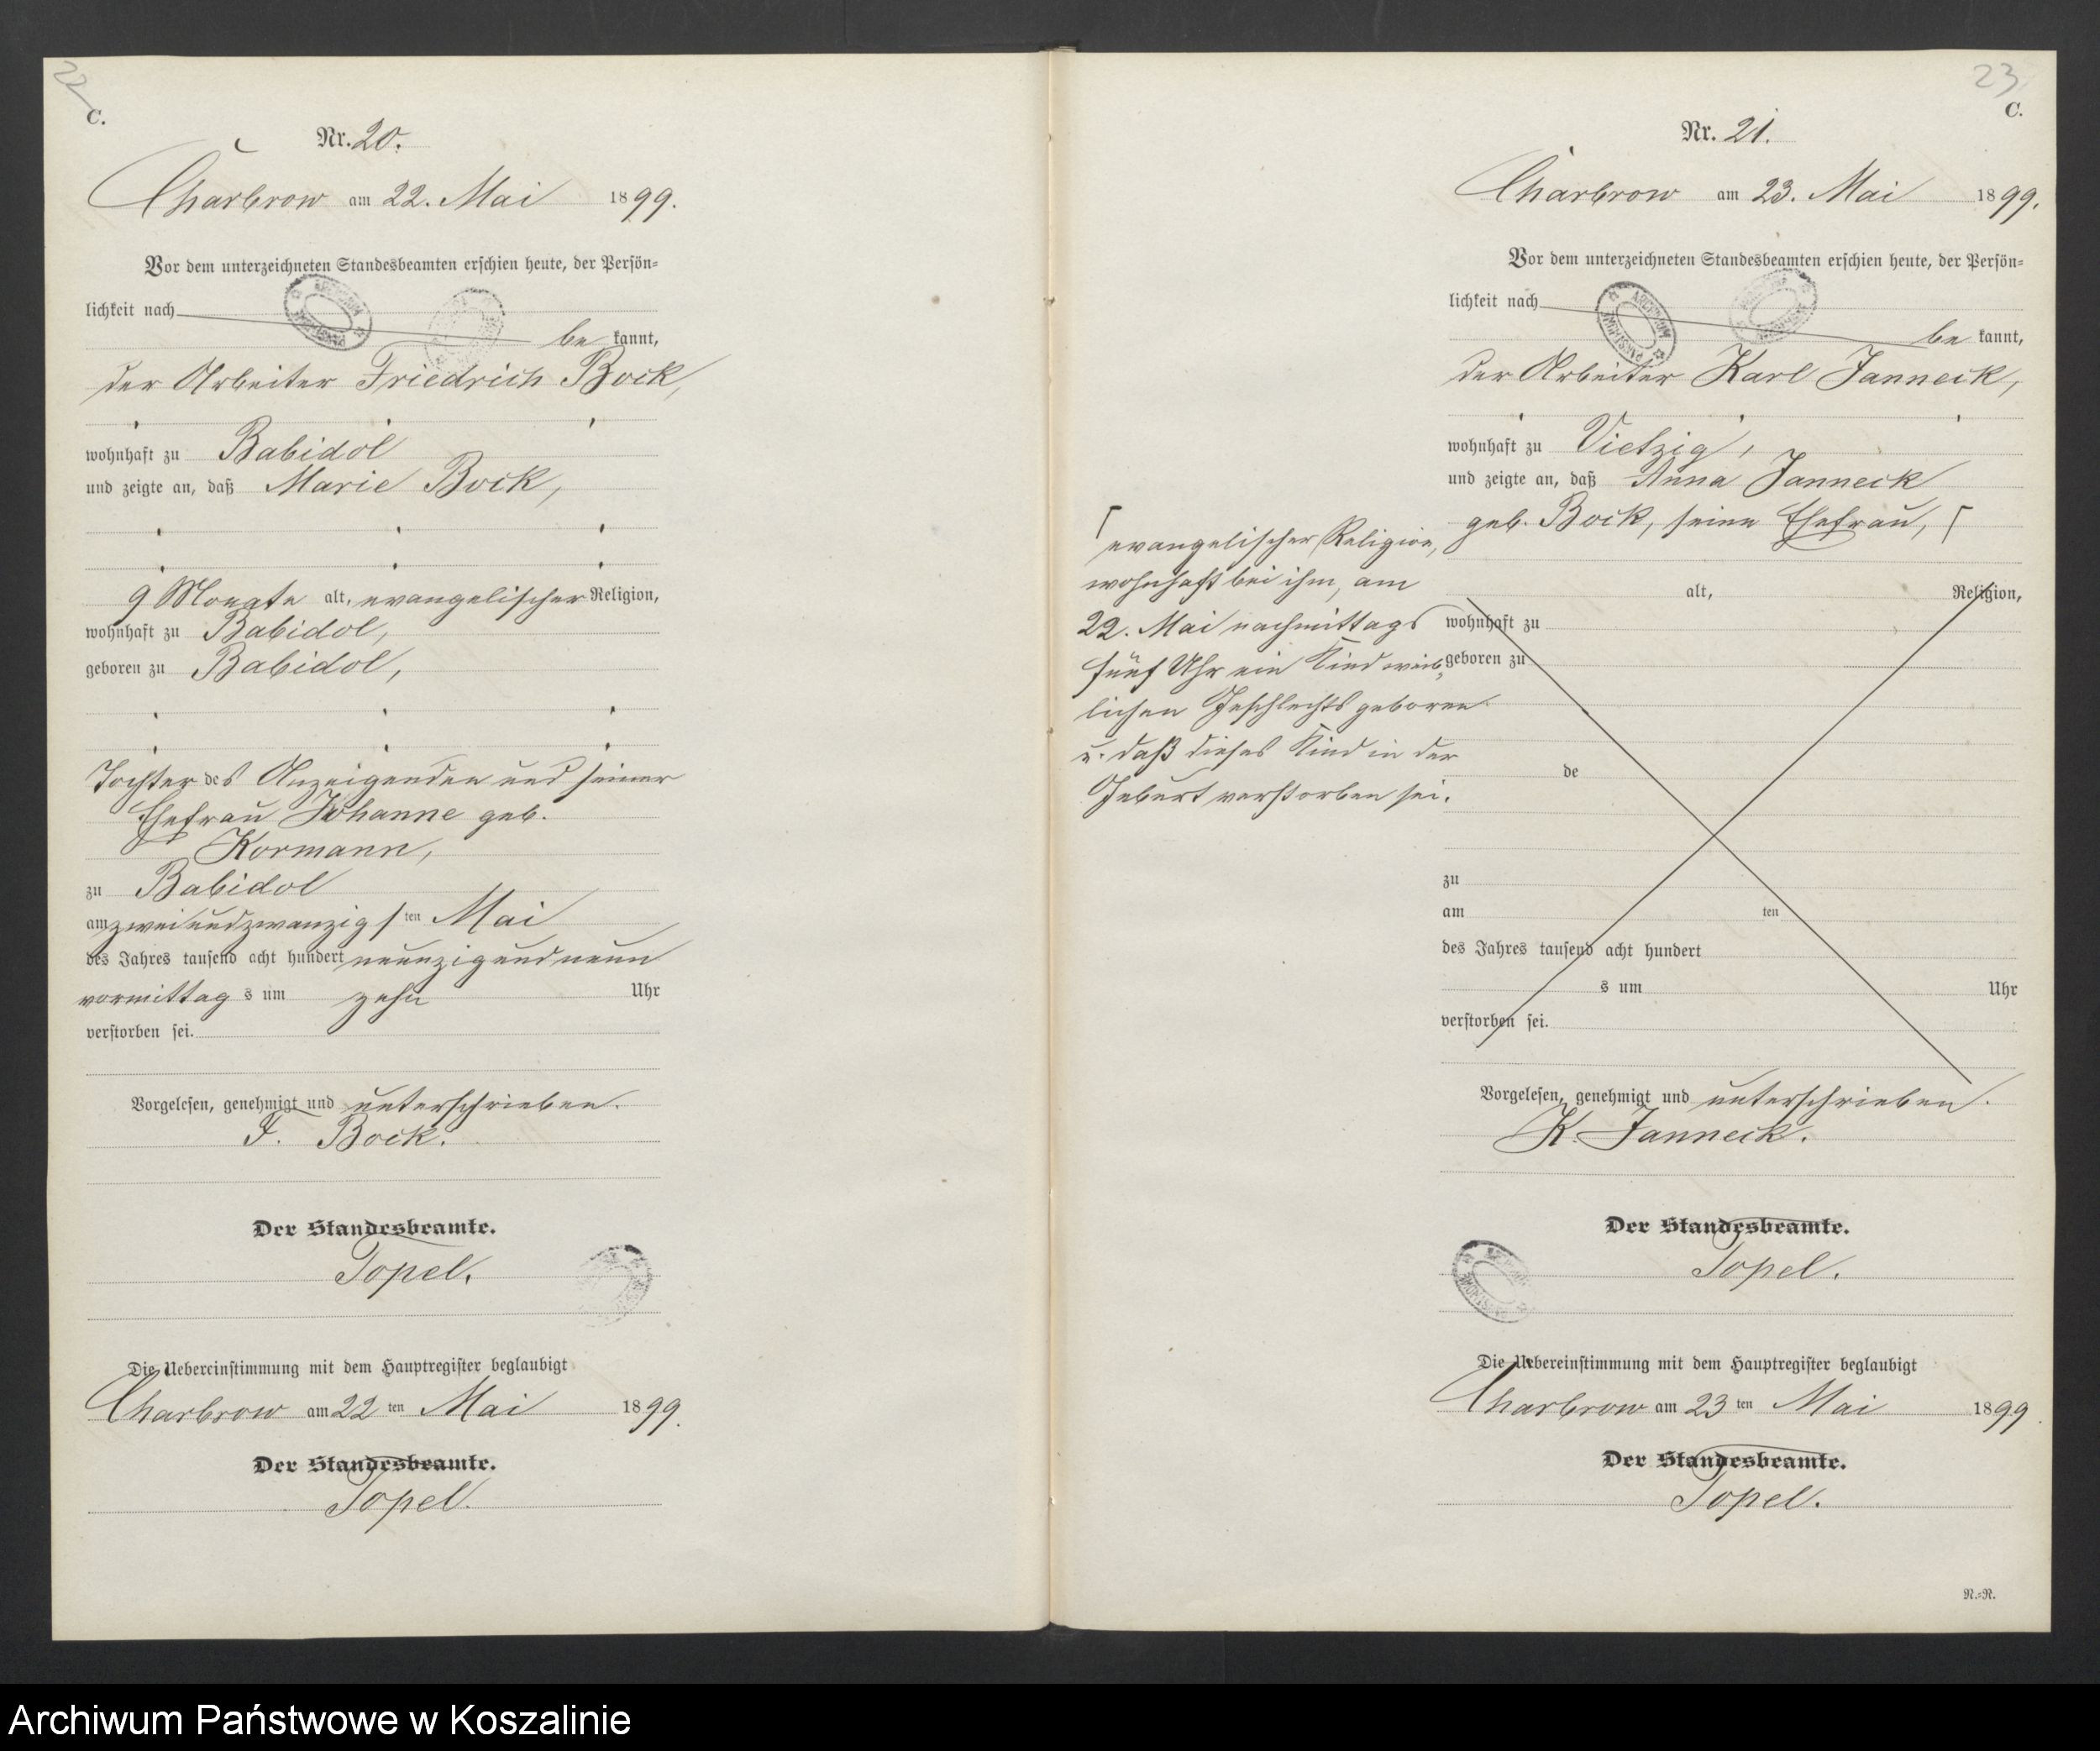 22
C.
Nr. 20.
Charbrow am 22. Mai 1899.
Vor dem unterzeichneten Standesbeamten erschien heute, der Persön=
lichkeit nach
be kannt,
der Arbeiter Friedrich Bock,
wohnhaft zu Babidol
und zeigte an, daß Marie Bock,
9 Monate alt, evangelischer Religion,
wohnhaft zu Babidol,
geboren zu Babidol,
Tochter des Anzeigenden und seiner
Ehefrau Johanne geb.
Kormann,
zu Babidol
am zweiundzwanzigsten Mai
des Jahres tausend acht hundert neunzigundneun
vormittags um zehn Uhr
verstorben sei.
Vorgelesen, genehmigt und unterschrieben.
F. Bock.
Der Standesbeamte.
Topel.
Die Uebereinstimmung mit dem Hauptregister beglaubigt
Charbrow am 22ten Mai 1899.
Der Standesbeamte.
Topel.
23
C.
Nr. 21.
Charbrow am 23. Mai 1899.
Vor dem unterzeichneten Standesbeamten erschien heute, der Persön=
lichkeit nach
be kannt,
der Arbeiter Karl Janneck,
wohnhaft zu Vietzig,
und zeigte an, daß Anna Janneck
geb. Bock, seine Ehefrau, ⌈
⌈ evangelischer Religion,
wohnhaft bei ihm, am
22. Mai nachmittags
fünf Uhr ein Kind weib=
lichen Geschlechts geboren
u. daß dieses Kind in der
Geburt verstorben sei.
alt, Religion,
wohnhaft zu
geboren zu
de
zu
am ten
des Jahres tausend acht hundert
s um Uhr
verstorben sei.
Vorgelesen, genehmigt und unterschrieben.
K. Janneck.
Der Standesbeamte.
Topel.
Die Uebereinstimmung mit dem Hauptregister beglaubigt
Charbrow am 23ten Mai 1899.
Der Standesbeamte.
Topel.
N.=R.
Archiwum Państwowe w Koszalinie